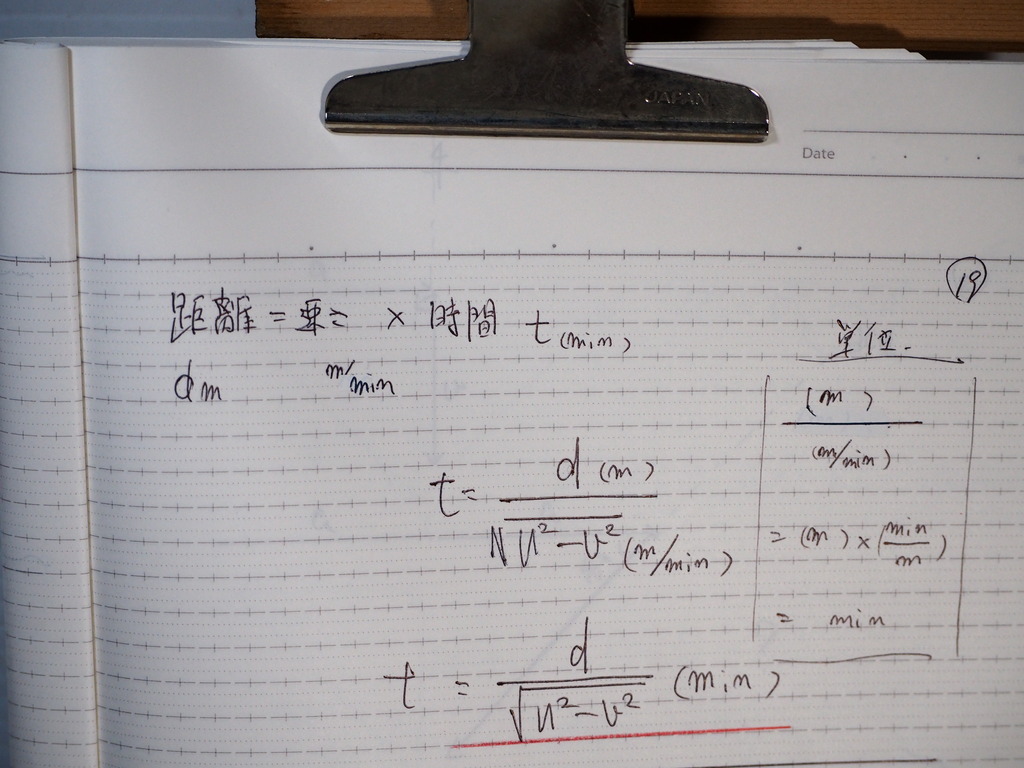 JAPAN
Date
19
距離 = × 時間 t (min)
d m m/min
単位.
(m)
(m/min)
= (m) × (min/m)
= min
t = d (m) / √u²-v² (m/min)
t = d / √u²-v² (min)